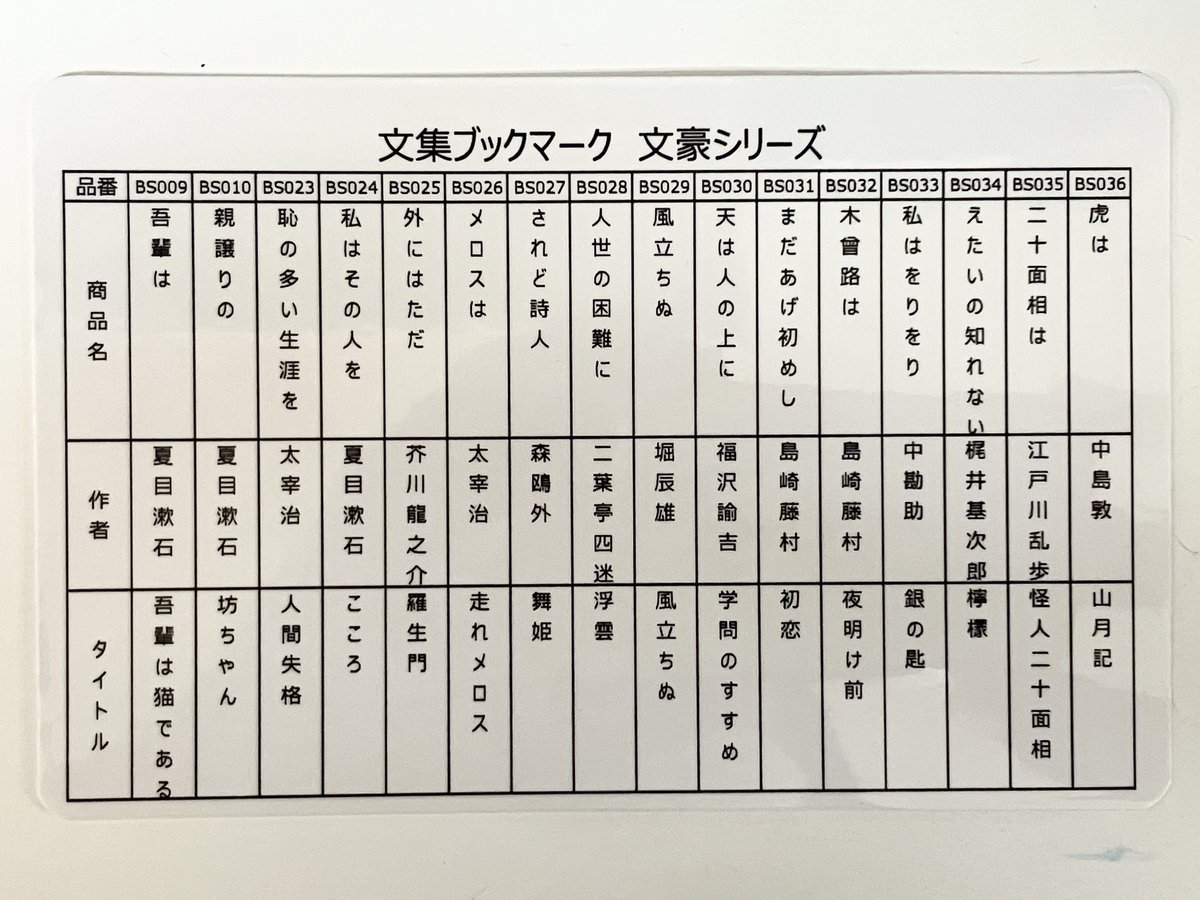 文集ブックマーク 文豪シリーズ
品番 BS009 BS010 BS023 BS024 BS025 BS026 BS027 BS028 BS029 BS030 BS031 BS032 BS033 BS034 BS035 BS036
商品名 吾輩は 親譲りの 恥の多い生涯を 私はその人を 外にはただ メロスは されど詩人 人世の困難に 風立ちぬ 天は人の上に まだあげ初めし 木曾路は 私はをりをり えたいの知れない 二十面相は 虎は
作者 夏目漱石 夏目漱石 太宰治 夏目漱石 芥川龍之介 太宰治 森鴎外 二葉亭四迷 堀辰雄 福沢諭吉 島崎藤村 島崎藤村 中勘助 梶井基次郎 江戸川乱歩 中島敦
タイトル 吾輩は猫である 坊ちゃん 人間失格 こころ 羅生門 走れメロス 舞姫 浮雲 風立ちぬ 学問のすすめ 初恋 夜明け前 銀の匙 檸檬 怪人二十面相 山月記